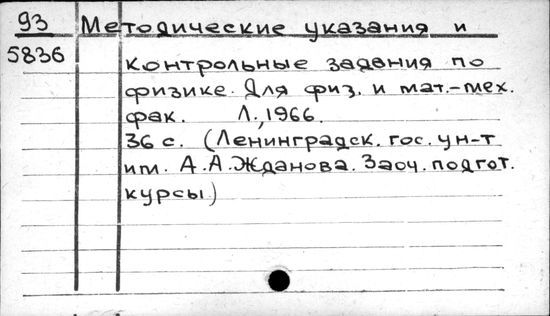 93 Методические указания и
5836
контрольные задания по
физике. Для физ. и мат.-мех.
фак. Л., 1966.
36 с. (Ленинградск. гос. ун-т
им. А.А.Жданова. Заоч. подгот.
курсы)